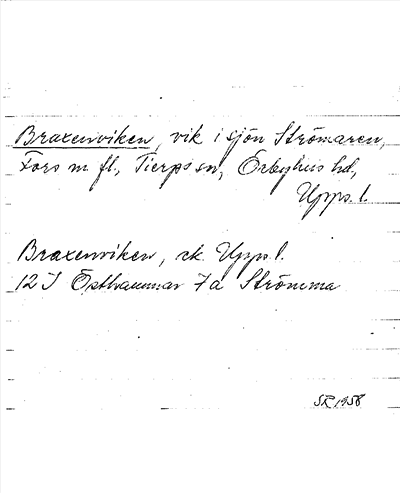 Braxenviken, vik i sjön Strömaren,
Fors m fl., Tierps sn, Örbyhus hd,
Upps. l.
Braxenviken, ek. Upps. l.
12 I Östhammar 7a Strömma
SR 1958